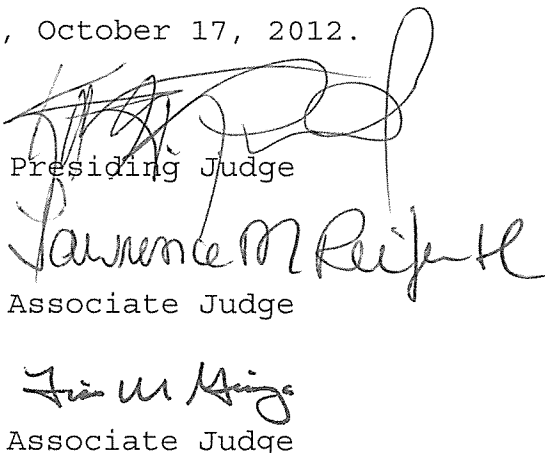 , October 17, 2012.
Presiding Judge
Lawrence M Reifurth
Associate Judge
Associate Judge